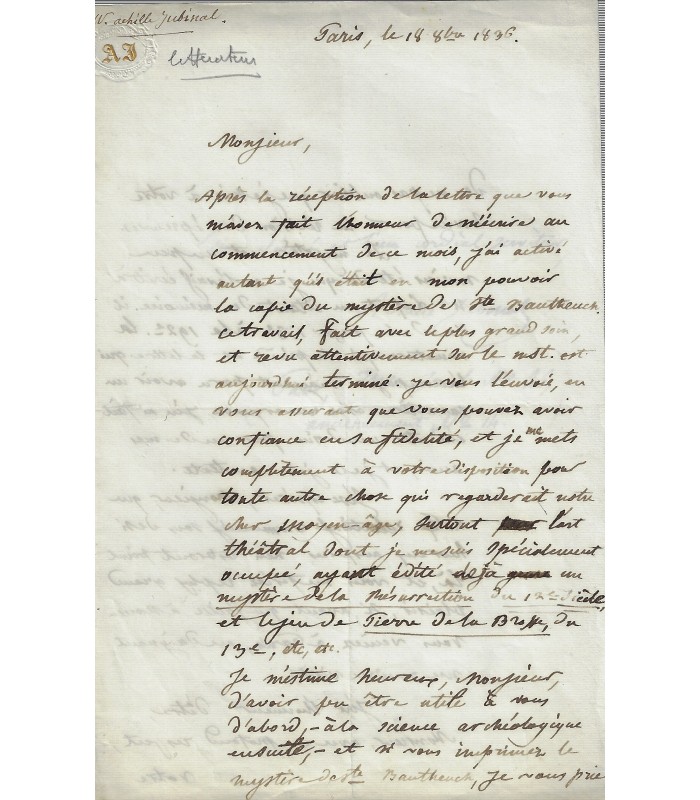 achille Jubinal.
AJ
littérateur
Paris, le 18 8bre 1836.
Monsieur,
Après la réception de la lettre que vous
m'avez fait l'honneur de m'écrire au
commencement de ce mois, j'ai activé
autant qu'il était en mon pouvoir
la copie du mystère de Ste Bautheuch.
ce travail, fait avec le plus grand soin,
et revu attentivement sur le mst. est
aujourd'hui terminé. Je vous l'envoie, en
vous assurant que vous pouvez avoir
confiance en sa fidélité, et je me mets
complètement à votre disposition pour
toute autre chose qui regarderait notre
cher moyen-âge, surtout l'art
théâtral dont je me suis spécialement
occupé, ayant édité déjà un
mystère de la Résurrection du 12me Siècle,
et le jeu de Pierre de la Brosse, du
13e, etc, etc.
Je m'estime heureux, Monsieur,
d'avoir pu être utile à vous
d'abord, - à la science archéologique
ensuite, - et si vous imprimez le
mystère de Ste Bautheuch, je vous prie